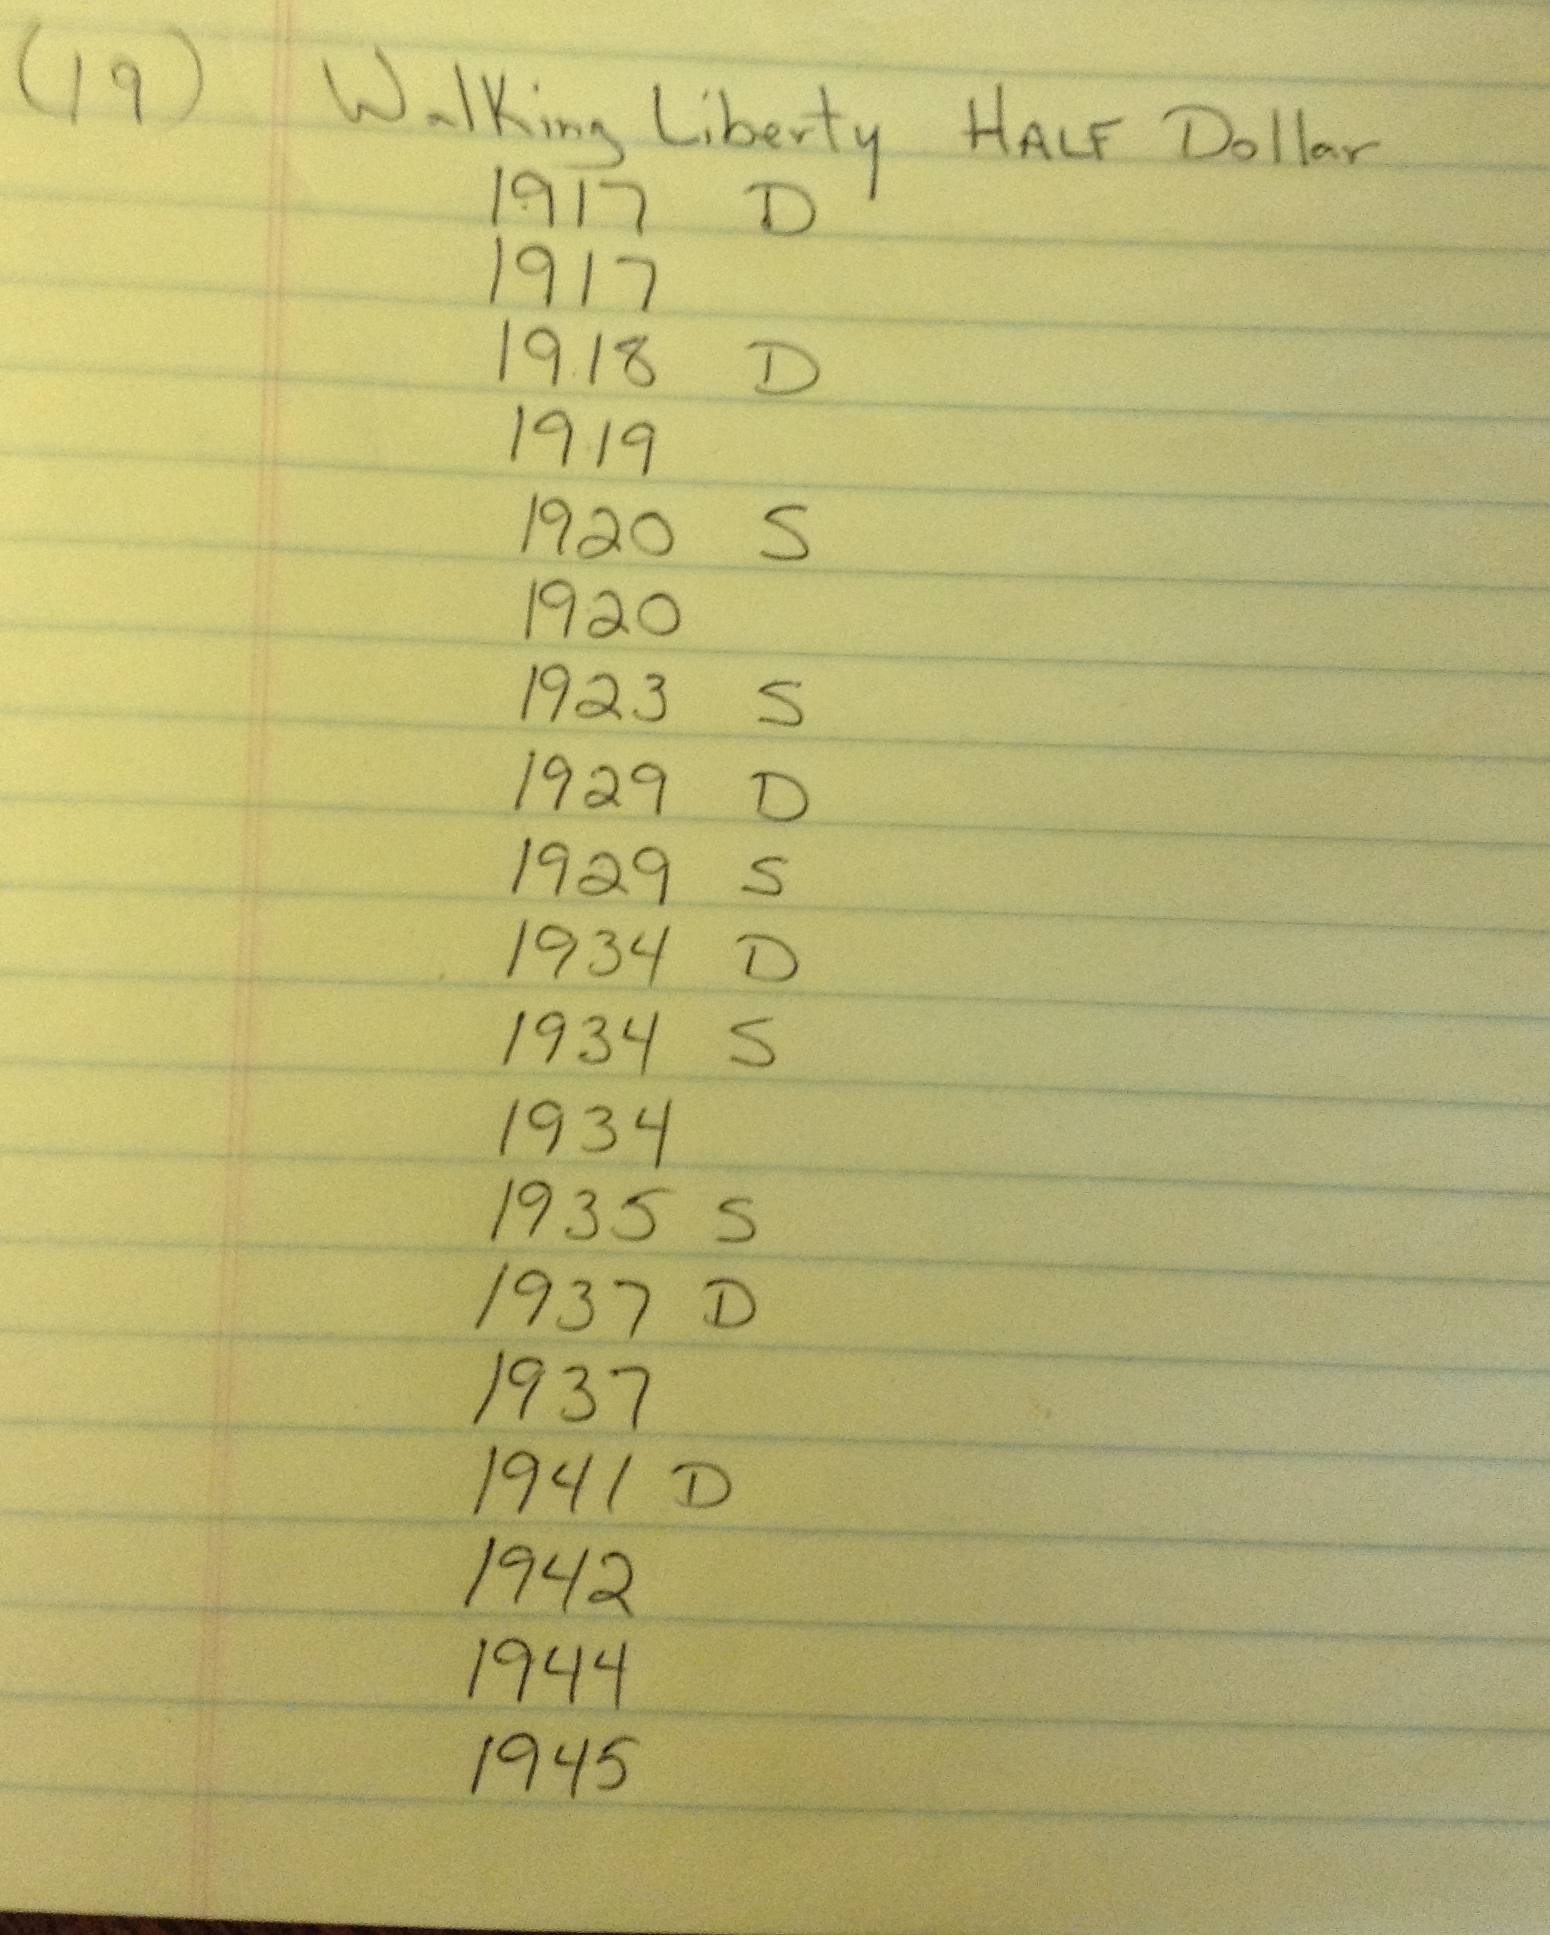 (19) Walking Liberty HALF Dollar
1917 D
1917
1918 D
1919
1920 S
1920
1923 S
1929 D
1929 S
1934 D
1934 S
1934
1935 S
1937 D
1937
1941 D
1942
1944
1945